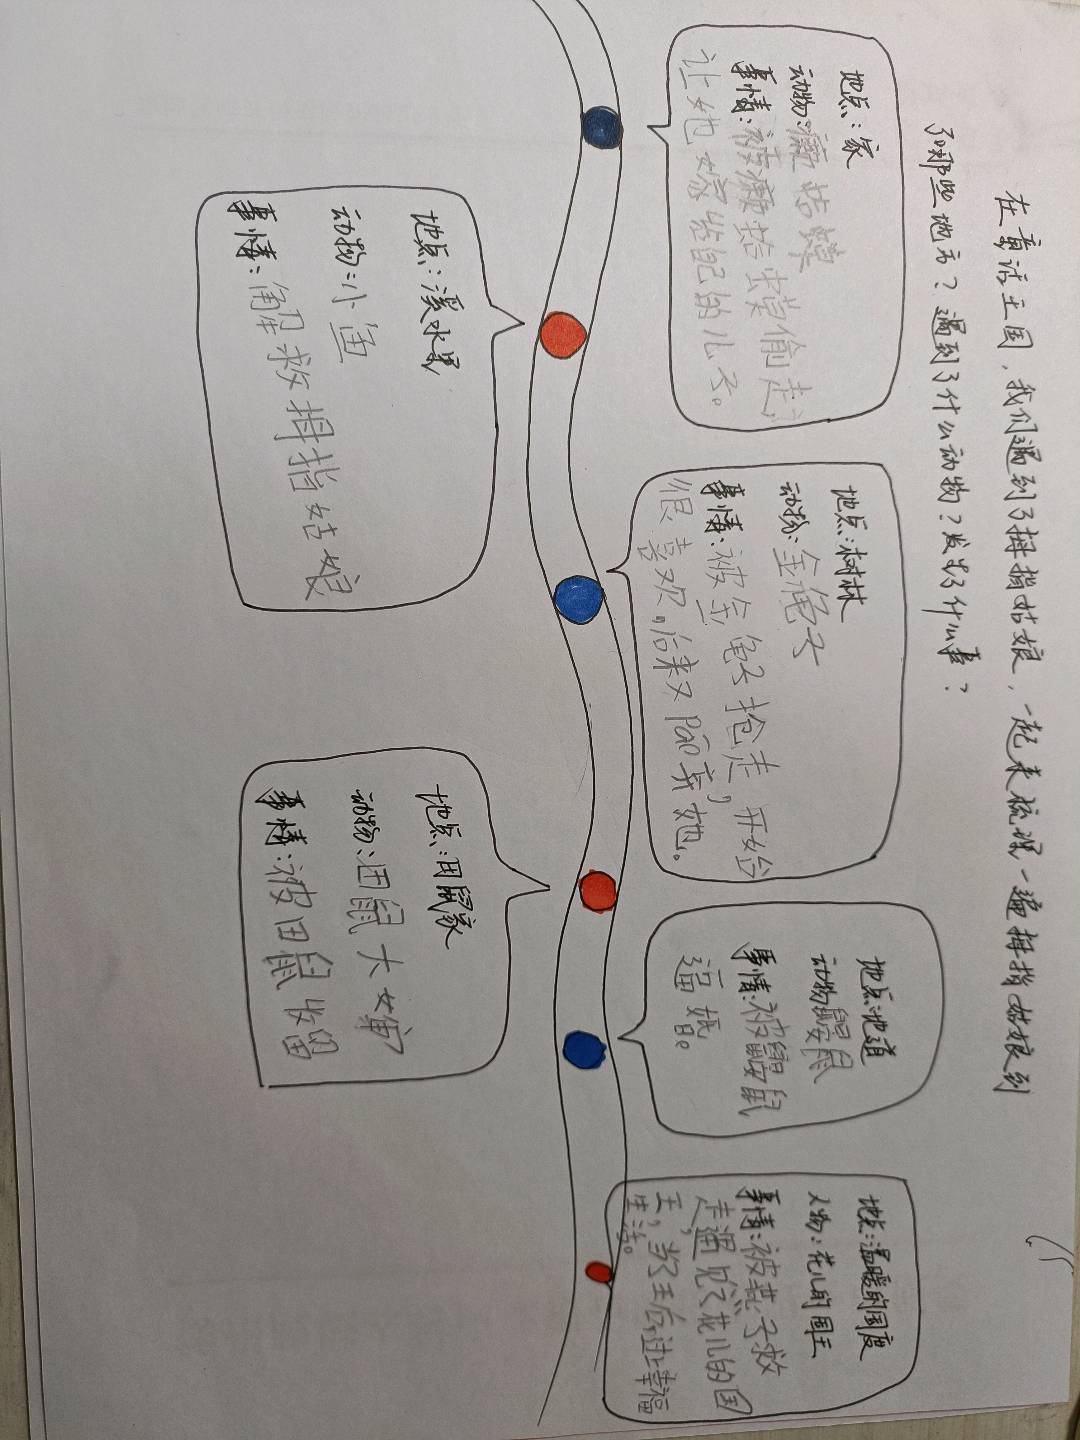 在童话王国，我们遇到了拇指姑娘，一起来梳理一遍拇指姑娘到
了哪些地方？遇到了什么动物？发生了什么事？
地点：家
动物：癞蛄蟆
事情：被癞蛄蟆偷走
让她嫁给自己的儿子。
地点：溪水里
动物：小鱼
事情：解救拇指姑娘
地点：树林
动物：金龟子
事情：被金龟子抢走，开始
很喜欢，后来又pāo弃她。
地点：田鼠家
动物：田鼠大婶
事情：被田鼠收留
地点：地道
动物：鼹鼠
事情：被鼹鼠
逼婚。
地点：温暖的国度
人物：花儿的国王
事情：被燕子救
走，遇见了花儿的国
王，当了王后，过上幸福
生活。